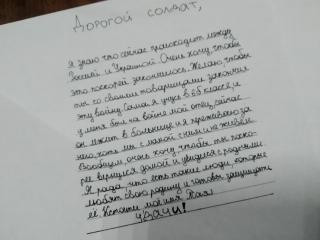 Дорогой солдат,
Я знаю что сейчас происходит между
Россией и Украиной. Очень хочу, чтобы
это поскорей закончилось. Желаю чтобы
ты со своими товарищами закончил
эту войну. Самая я учусь в 6Б классе, и
у меня был на войне мой отец, сейчас
он лежит в больнице и я переживаю за
него, хоть мы с мамой с ним и не живём.
Вообщем, очень хочу, чтобы ты поско-
рее вернулся домой и увиделся с родными.
Я рада, что есть такие люди, которые
любят свою родину и готовы защищать
её. Кстати моё имя
Удачи!